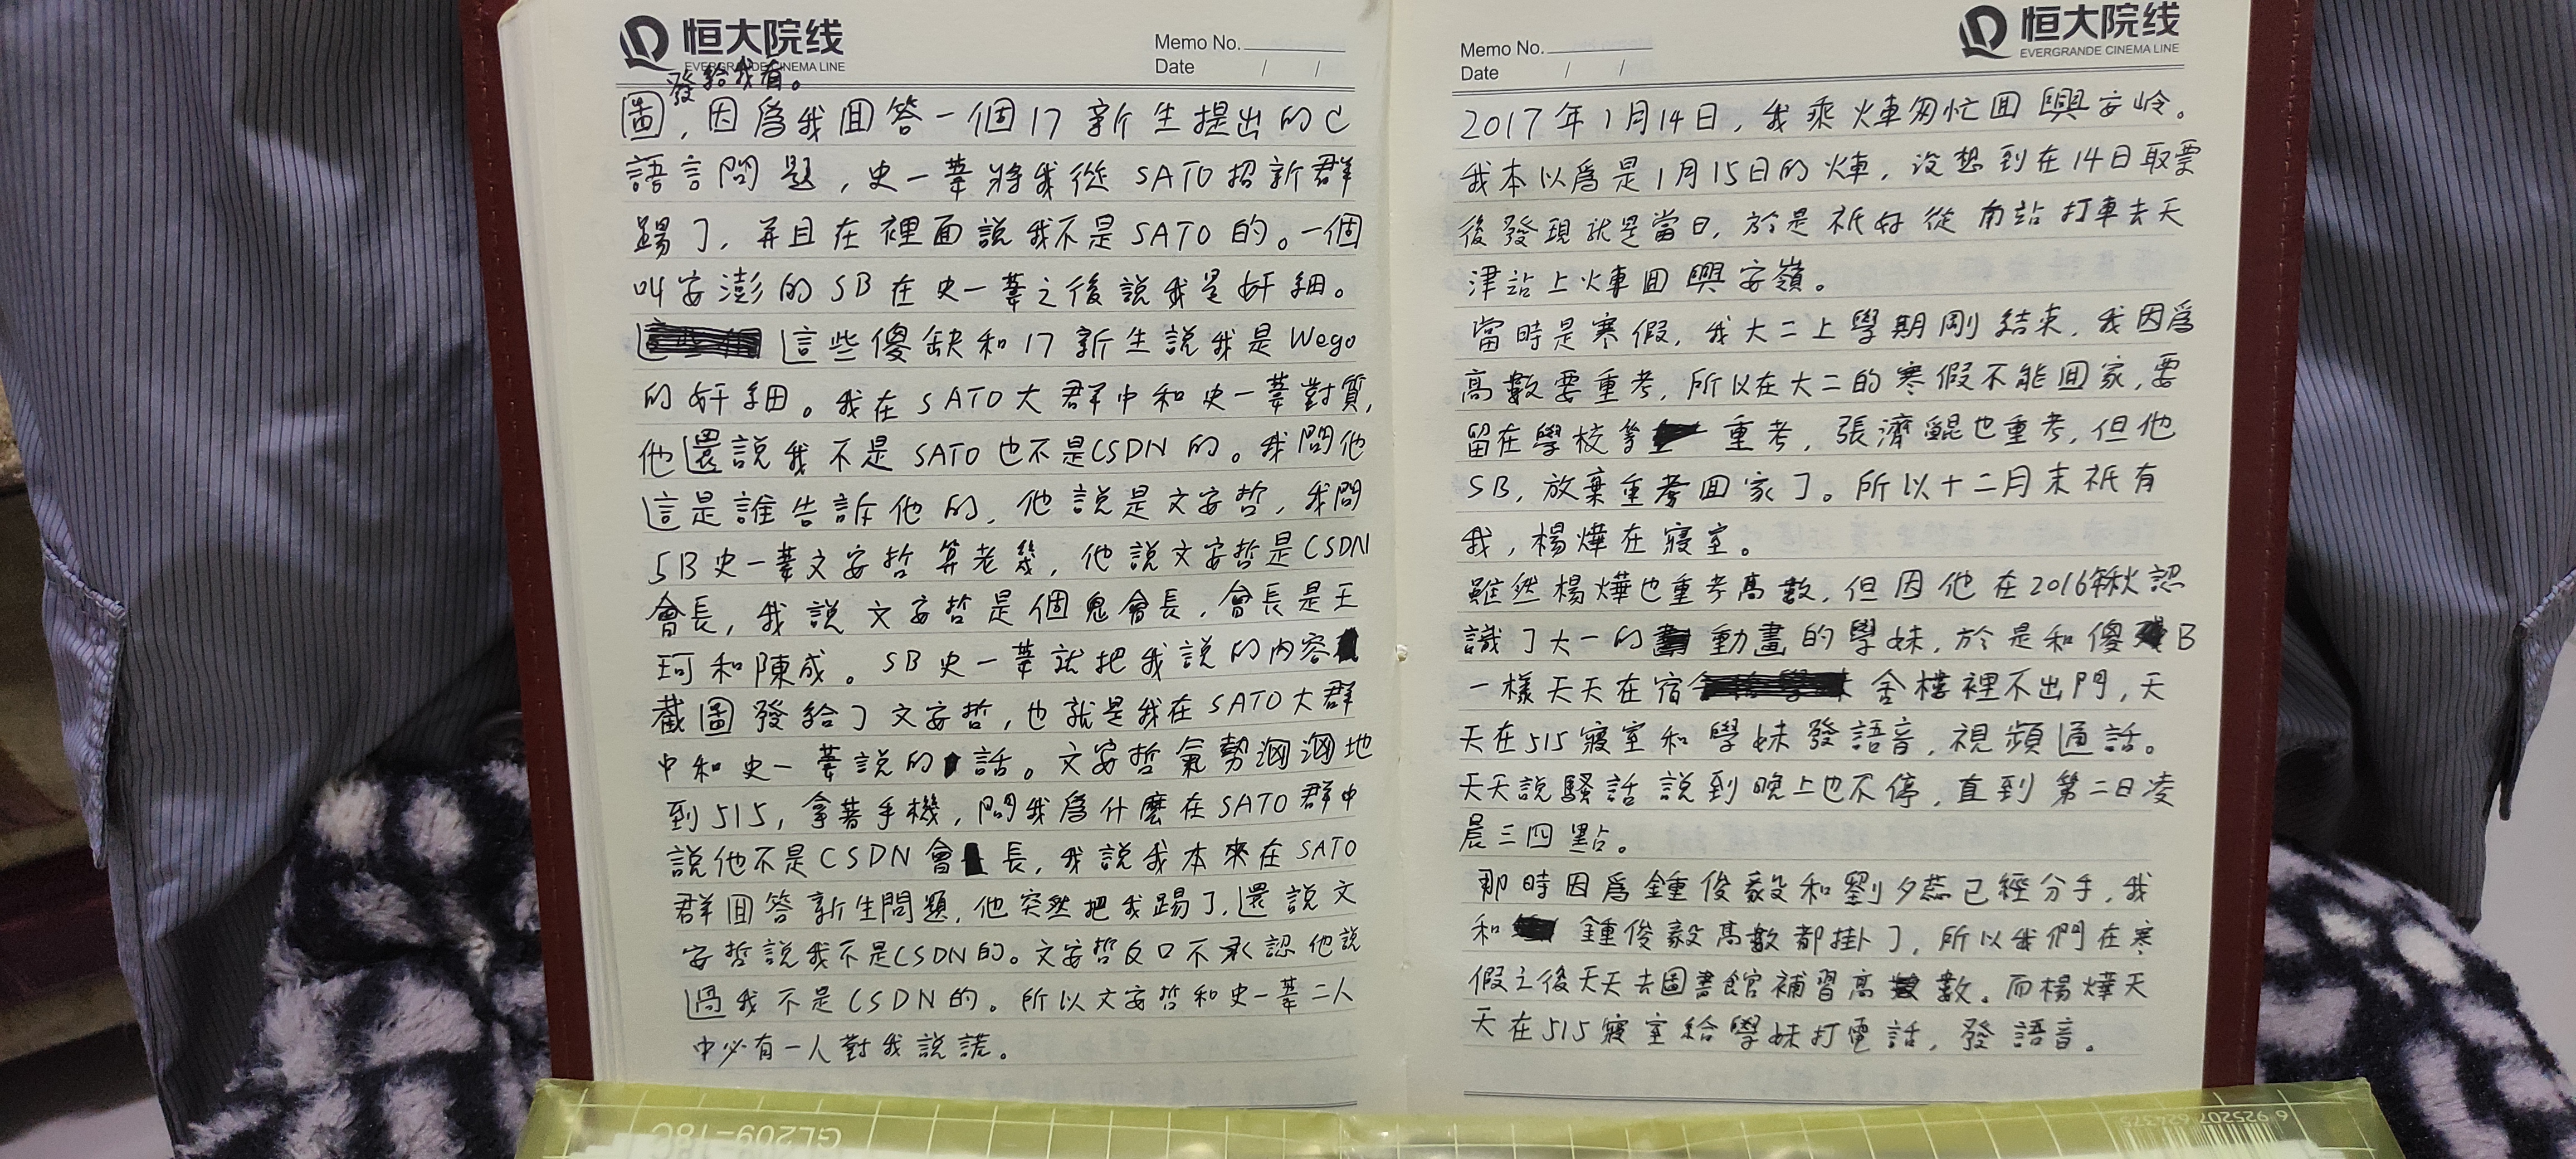 恒大院线
EVERGRANDE CINEMA LINE
Memo No.
Date / /
發給我看。
圖，因爲我回答一個17新生提出的C
語言問題，史一葦將我從SATO招新群
踢了，并且在裡面説我不是SATO的。一個
叫安澎的SB在史一葦之後説我是奸細。
這些傻缺和17新生説我是Wego
的奸細。我在SATO大群中和史一葦對質，
他還説我不是SATO也不是CSDN的。我問他
這是誰告訴他的，他説是文安哲，我問
SB史一葦文安哲算老幾，他説文安哲是CSDN
會長，我説文安哲是個鬼會長，會長是王
珂和陳成。SB史一葦就把我説的内容
截圖發給了文安哲，也就是我在SATO大群
中和史一葦説的話。文安哲氣勢洶洶地
到515，拿著手機，問我爲什麽在SATO群中
説他不是CSDN會長，我説我本來在SATO
群回答新生問題，他突然把我踢了，還説文
安哲説我不是CSDN的。文安哲反口不承認他説
過我不是CSDN的。所以文安哲和史一葦二人
中必有一人對我説謊。
恒大院线
EVERGRANDE CINEMA LINE
Memo No.
Date / /
2017年1月14日，我乘火車匆忙回興安岭。
我本以爲是1月15日的火車，没想到在14日取票
後發現就是當日，於是祇好從南站打車去天
津站上火車回興安嶺。
當時是寒假，我大二上學期剛結束，我因爲
高數要重考，所以在大二的寒假不能回家，要
留在學校等重考，張濟鯤也重考，但他
SB，放棄重考回家了。所以十二月末祇有
我，楊燁在寢室。
雖然楊燁也重考高數，但因他在2016年秋認
識了大一的動畫的學妹，於是和傻B
一樣天天在宿舍樓裡不出門，天
天在515寢室和學妹發語音，視頻通話。
天天説騷話説到晚上也不停，直到第二日凌
晨三四點。
那時因爲鍾俊毅和劉夕蕊已經分手，我
和鍾俊毅高數都掛了，所以我們在寒
假之後天天去圖書館補習高數。而楊燁天
天在515寢室給學妹打電話，發語音。
GL209-18C
6 925207 624375